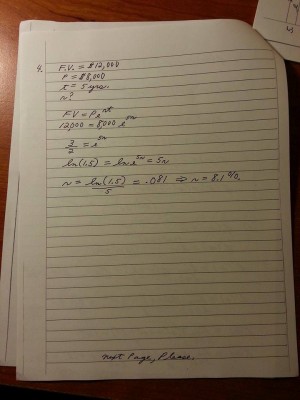 4. F.V. = $12,000
P = $8,000
t = 5 yrs.
r?
FV = Pe^rt
12000 = 8,000 e^5r
3/2 = e^5r
ln(1.5) = ln e^5r = 5r
r = ln(1.5)/5 = .081 ⇒ r = 8.1%.
next Page, Please.